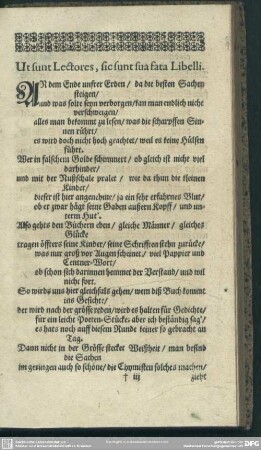 Ut sunt Lectores, sic sunt sua fata Libelli.
AN dem Ende unsrer Erden / da die besten Sachen
steigen /
und was solte seyn verborgen / kan man endlich nicht
verschweigen /
alles man bekommt zu lesen / was die scharpffen Sin-
nen rührt /
es wird doch nicht hoch geachtet / weil es keine Hülsen
führt.
Wer in falschem Golde schimmert / ob gleich ist nicht viel
darhinder /
und mit der Nußschale pralet / wie da thun die kleinen
Kinder /
dieser ist hier angenehme / ja ein sehr erfahrnes Blut /
ob er zwar hägt seine Gaben aussern Kopff / und un-
term Hut.
Also gehts den Büchern eben / gleiche Männer / gleiches
Glücke
tragen öffters seine Kinder / seine Schrifften stehn zurücke /
was nur groß vor Augen scheinet / viel Pappier und
Centner-Wort /
ob schon sich darinnen hemmet der Verstand / und wil
nicht fort.
So wirds uns hier gleichfals gehen / wem diß Buch kommt
ins Gesichte /
der wird nach der grösse reden / wird es halten für Gedichte /
für ein leicht Poeten-Stücke: aber ich beständig sag' /
es hats noch auff diesem Runde keiner so gebracht an
Tag.
Dann nicht in der Grösse stecket Weißheit / man besind
die Sachen
im geringen auch so schöne / die Chymisten solches machen /
† iij zieht